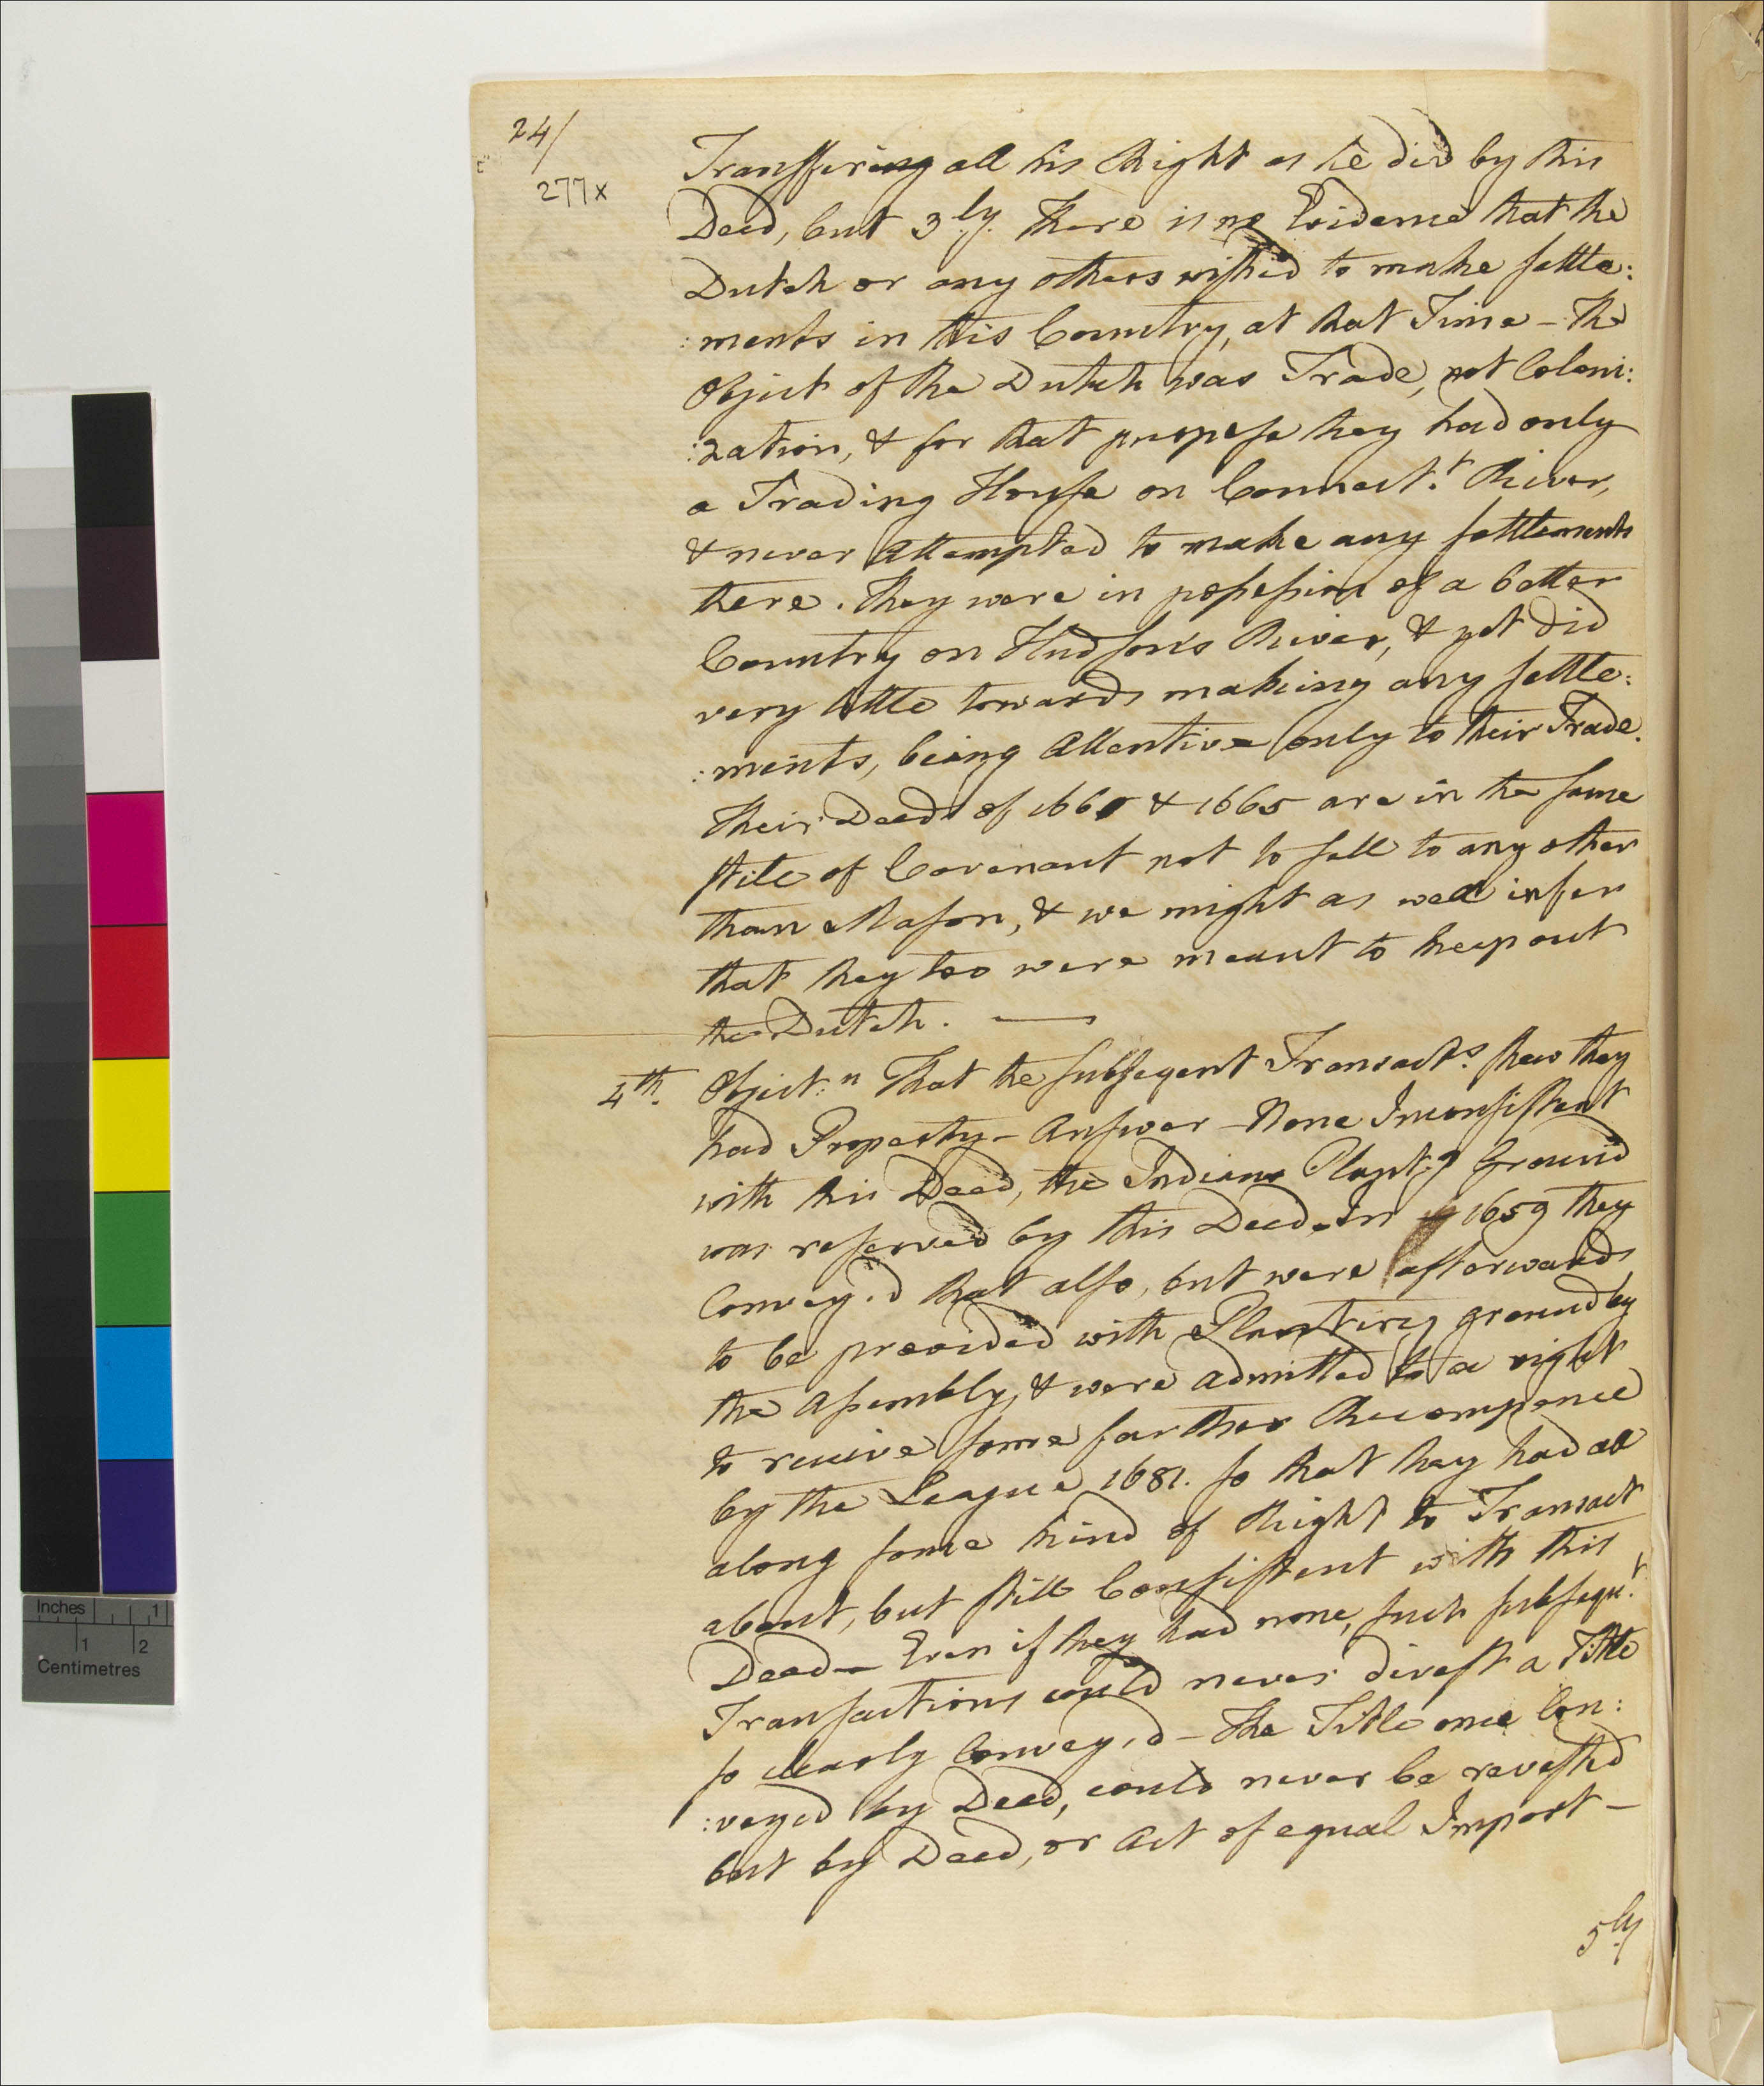 24/
277x
Transfering all his Right as he did by this
Deed, but 3.ly. there is no Evidence that the
Dutch or any others wished to make settle:
:ments in this Country, at that Time – The
Object of the Dutch was Trade, not Coloni:
:zation, & for that purpose they had only
a Trading House on Connect.t River,
& never Attempted to make any settlements
there. They were in possession of a better
Country on Hudson's River, & yet did
very little towards making any settle:
:ments, being Attentive only to their Trade.
Their Deeds of 1661 & 1665 are in the same
stile of Covenant not to sell to any other
than Mason, & we might as well infer
that they too were meant to keep out
the Dutch. —
4th. Object:n That the subseqent Transact.s shew they
had Property – Answer – None Inconsistent
with this Deed, the Indians Plant.g Ground
was reserved by this Deed. In 1659 they
Convey.d that also, but were afterwards
to be provided with Planting ground by
the Assembly, & were admitted to a right
to receive some farther Recompence
by the League 1681. so that they had all
along some kind of Right to Transact
about, but still Consistent with this
Deed – Even if they had none, such subsequ.t
Transactions could never divest a Title
so clearly Convey,d – The Title once Con:
:veyed by Deed, could never be revested
but by Deed, or Act of equal Import –
5.ly
Inches 1
1 2
Centimetres